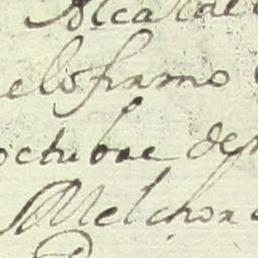 Alcalde
elo firmo
octubre de
Melchor